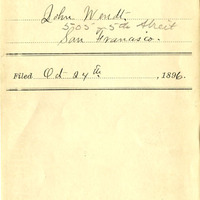 John Wendt.
505 - 5th Street
San Francisco.
Filed Oct 24th, 1896.